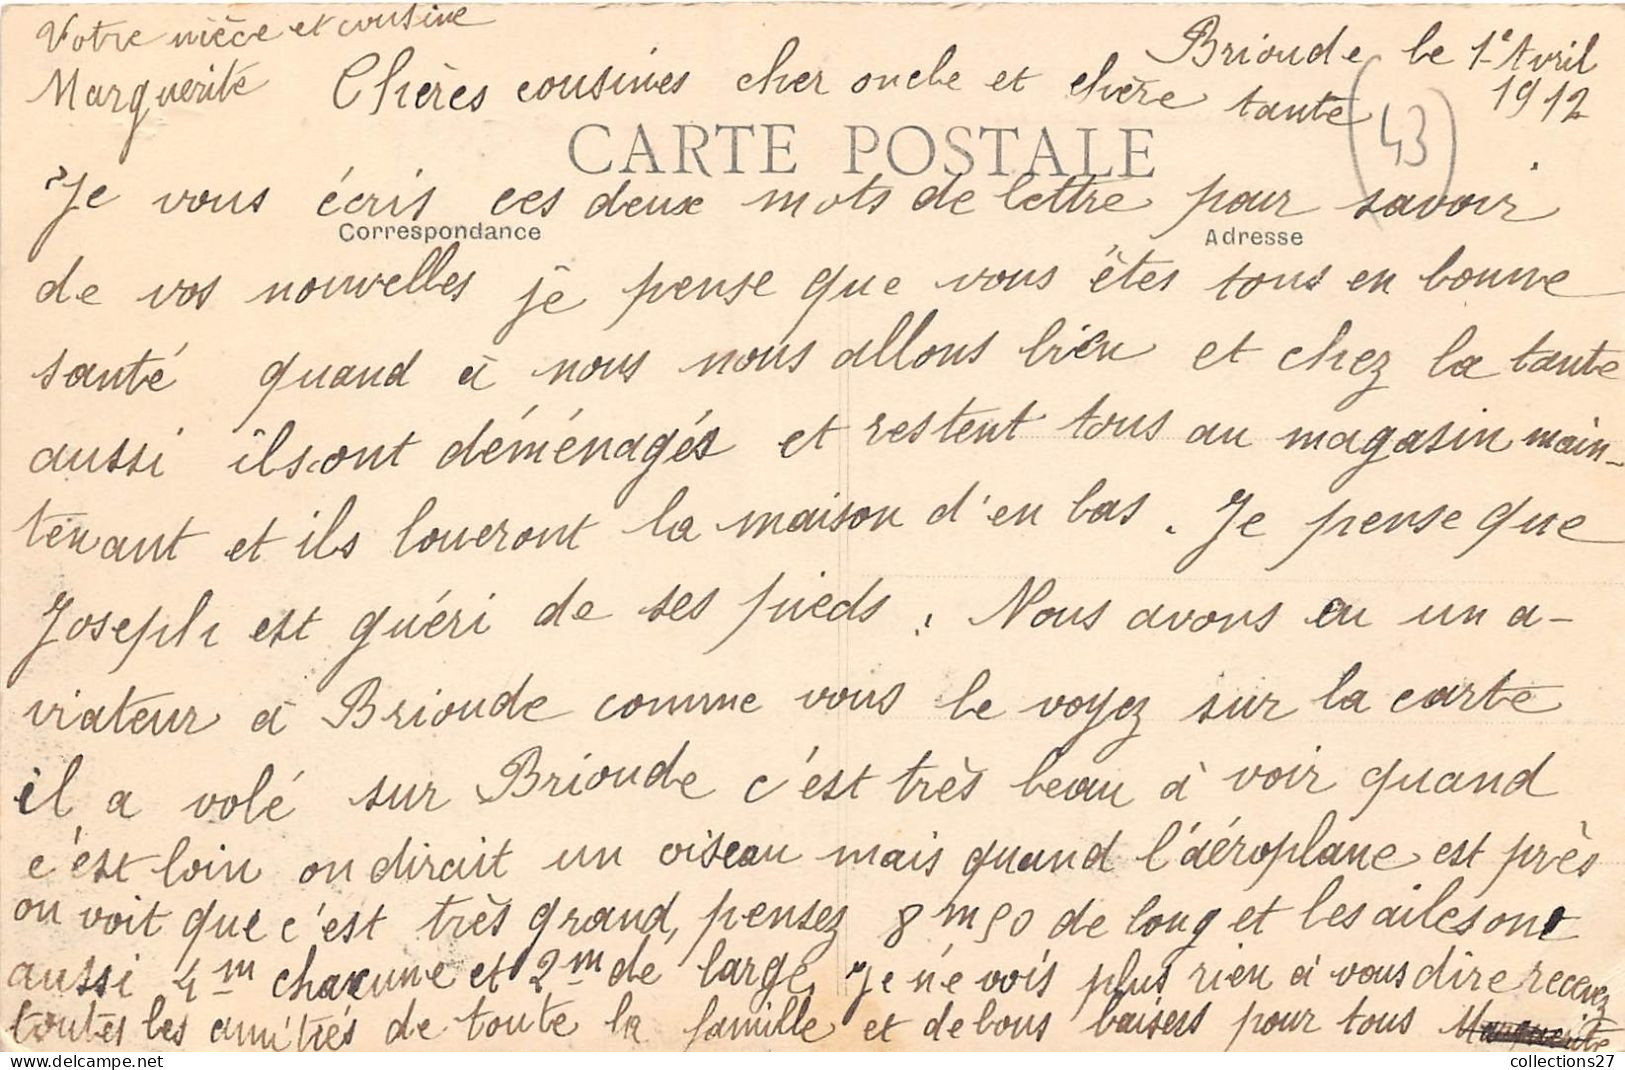 Votre nièce et cousine
Marguerite
Brioude le 1e Avril
1912
Chères cousines cher oncle et chère tante
(43)
CARTE POSTALE
Je vous écris ces deux mots de lettre pour savoir
Correspondance
Adresse
de vos nouvelles je pense que vous êtes tous en bonne
santé quand à nous nous allons bien et chez la tante
aussi ils ont déménagés et restent tous au magasin main-
tenant et ils loueront la maison d'en bas. Je pense que
Joseph est guéri de ses pieds. Nous avons eu un a-
viateur à Brioude comme vous le voyez sur la carte
il a volé sur Brioude c'est très beau à voir quand
c'est loin on dirait un oiseau mais quand l'aéroplane est près
on voit que c'est très grand, pensez 8m50 de long et les ailes ont
aussi 4m chacune et 2m de large. Je ne vois plus rien à vous dire recevez
toutes les amitiés de toute la famille et de bons baisers pour tous Marguerite
collections27